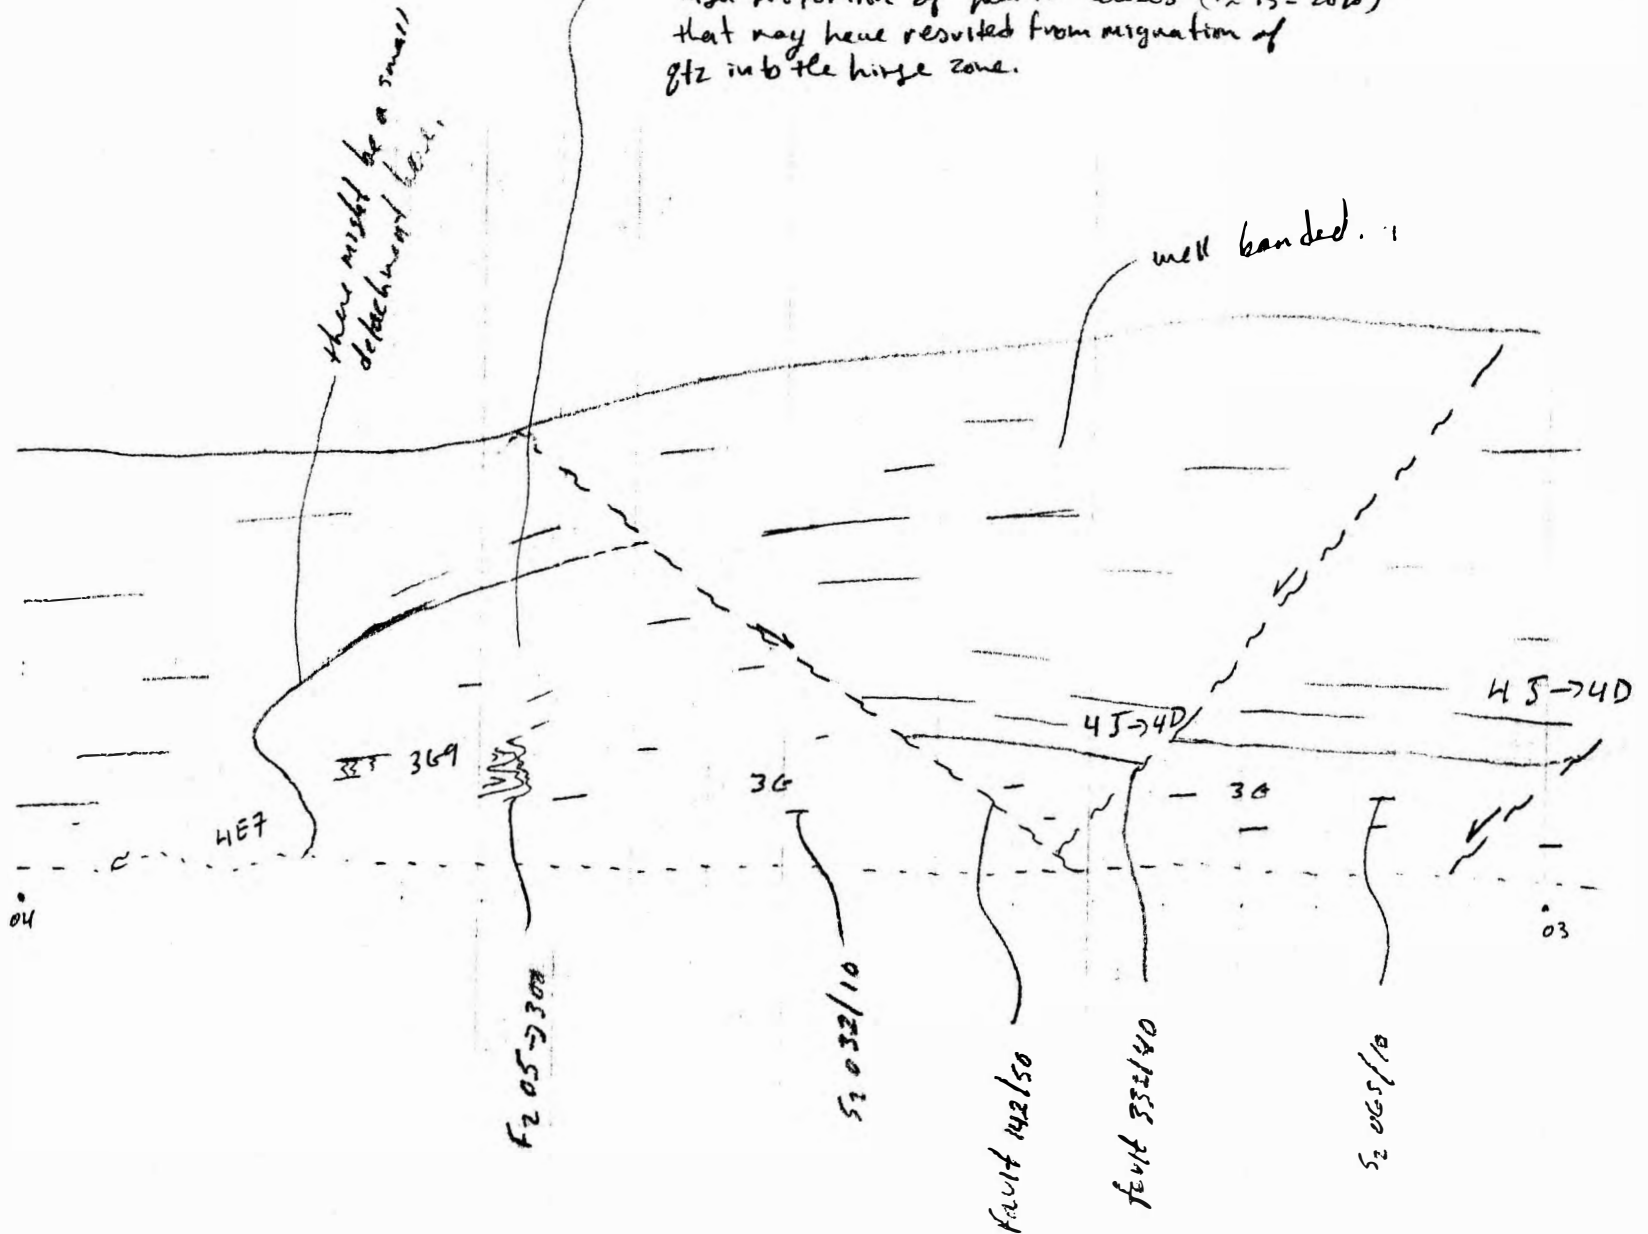 that may have resulted from migration of
qtz into the hinge zone.
there might be a small
detachment here.
well banded.
4J→4D
4J→4D
3G9
3G
3G
4E7
04
03
F2 05→300
S2 032/10
Fault 142/50
fault 332/40
S2 065/10